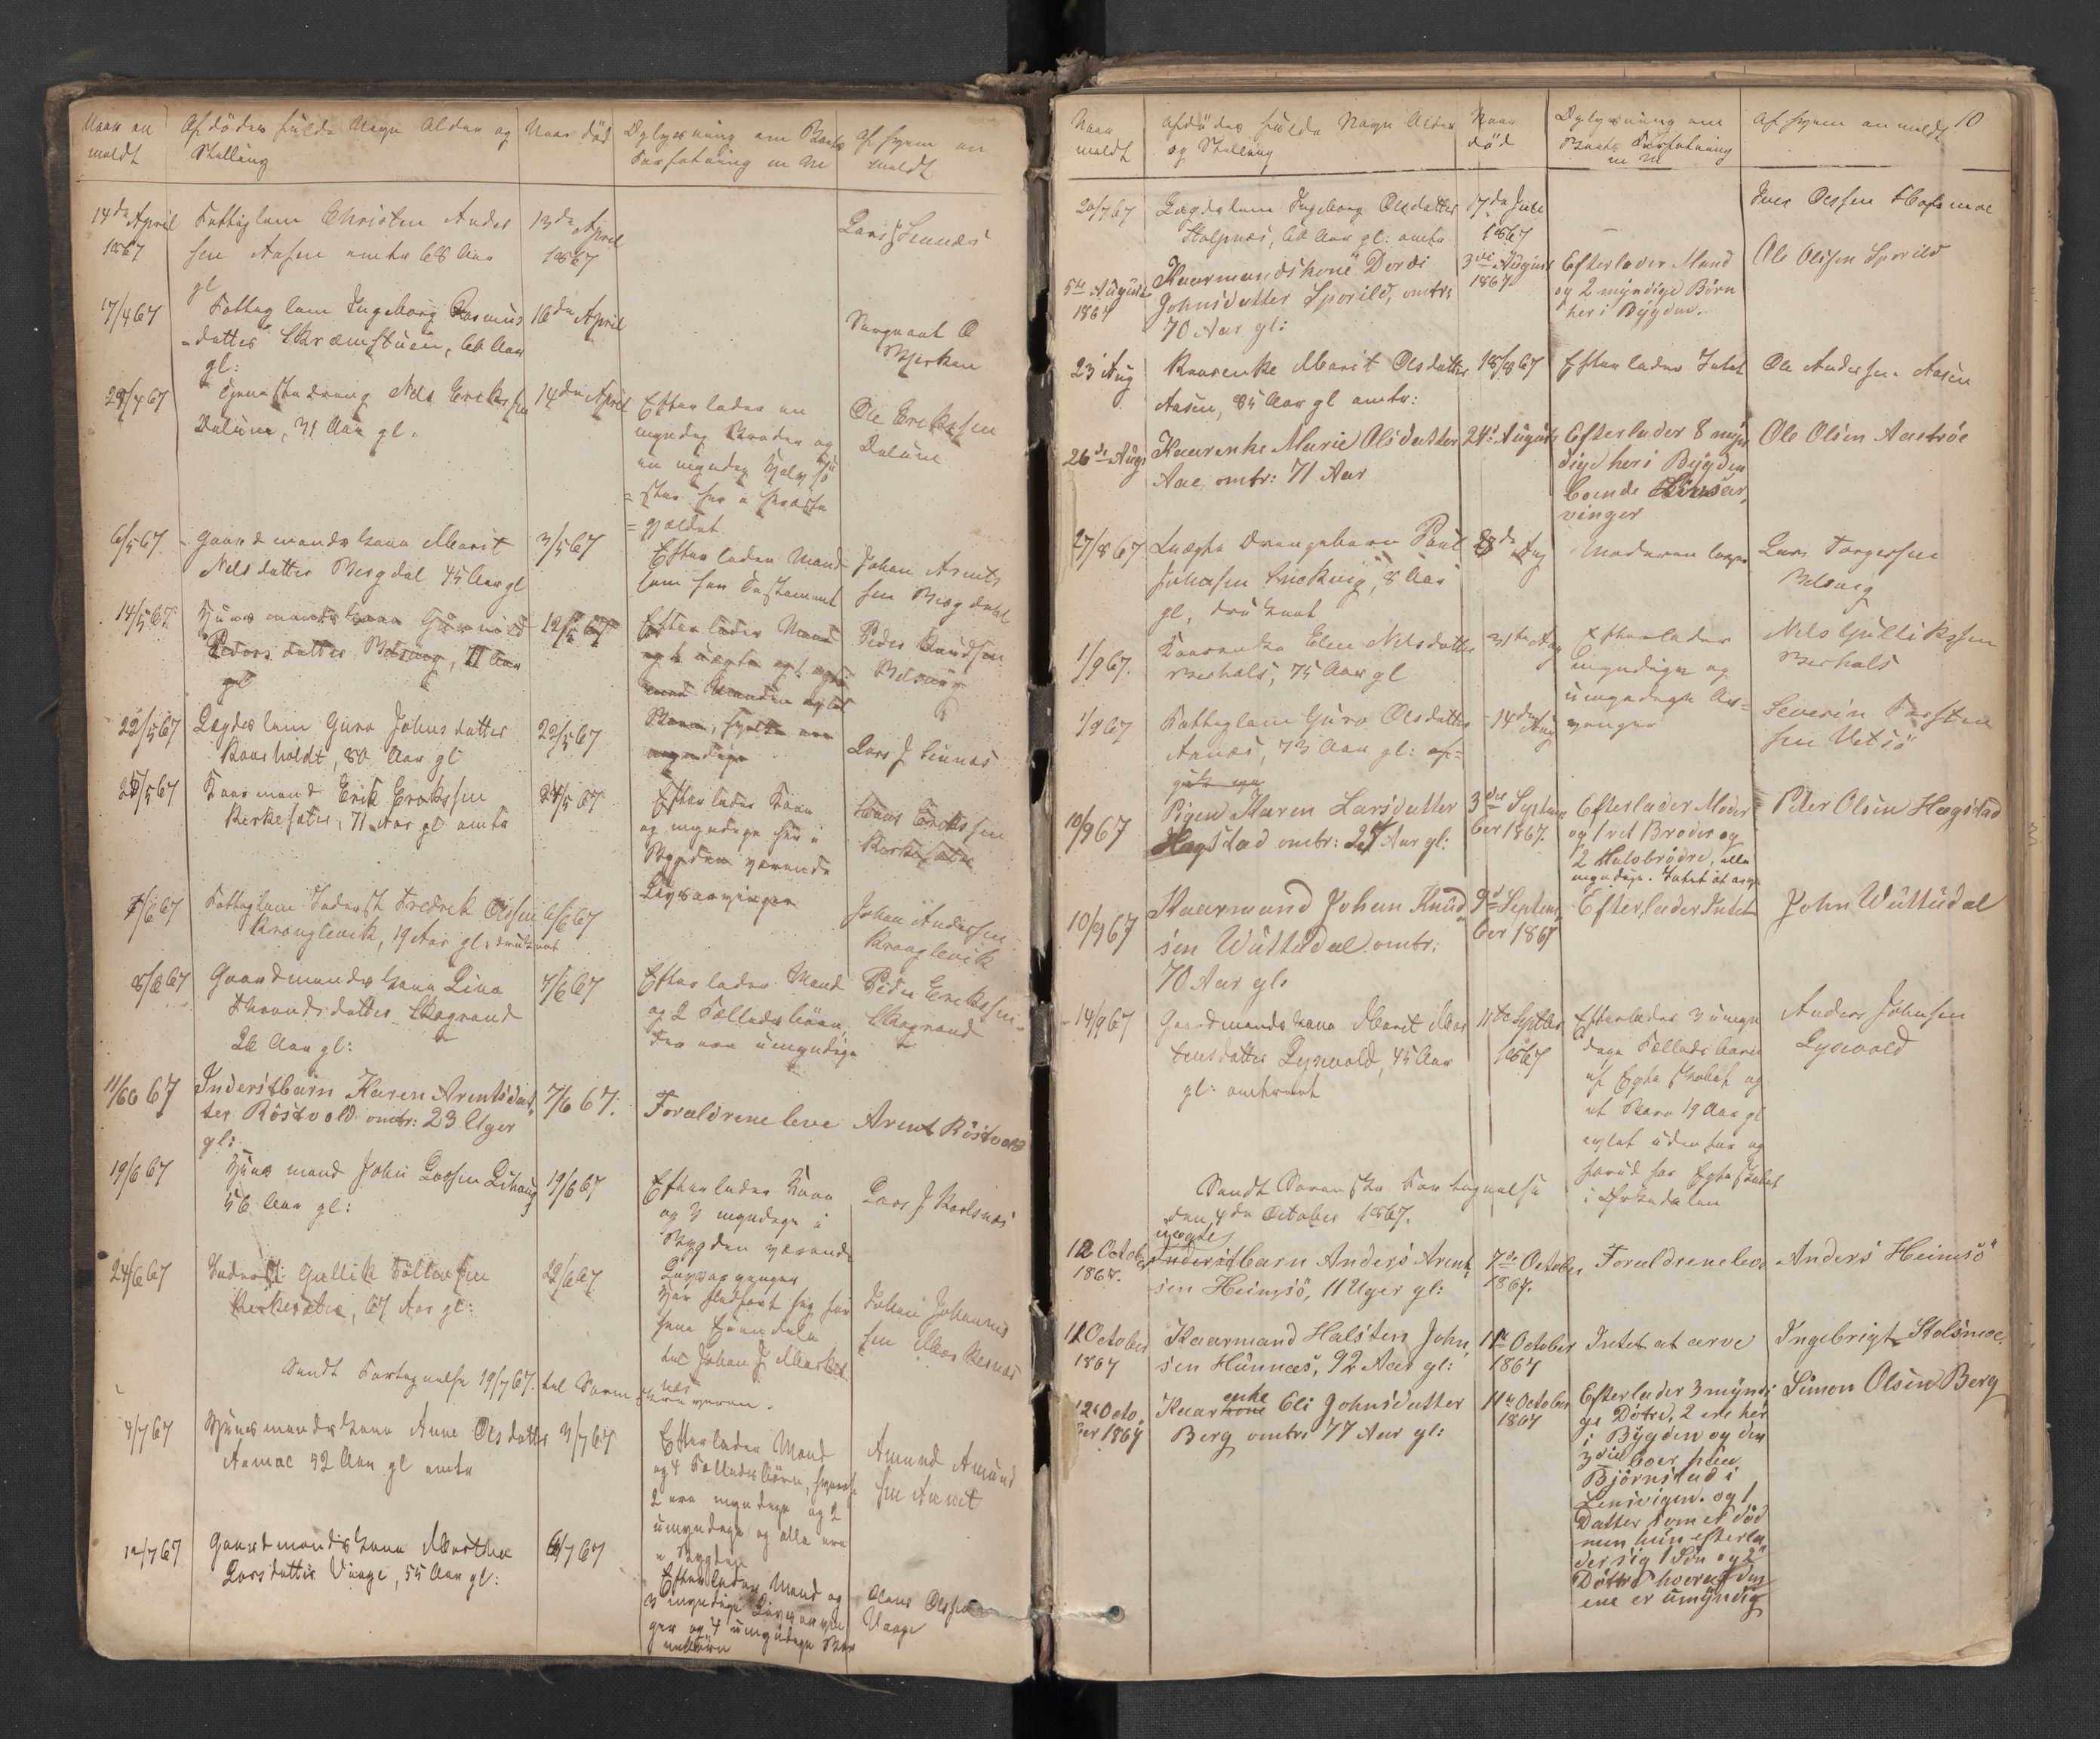 Naar an
meldt
Afdødes fulde Navn Alder og
Stilling
Naar død
Oplysning om Boets
Forfatning m M
Af hvem an
meldt
14de April
1867
Fattiglem Christen Anders
sen Aasen omtr 68 Aar
gl
13de April
1867
Lars J Linnæs
17/4 67
Fattiglem Ingeborg Rasmus
=datter Skræmstuen, 66 Aar
gl:
16de April
Sergeant O
Bjerkan
29/4 67
Tjenestedreng Nils Erikssen
Dalum, 31 Aar gl.
14de April
Efterlader en
myndig Broder og
en myndig Halvsø
=ster her i Præste
=gjældet
Ole Erikssen
Dalum
6/5 67
Gaardmandskone Marit
Nilsdatter Bergdal 45 Aar gl
3/5 67
Efterlader Mand
som har Testament
Johan Arnts
sen Bergdal
14/5 67
Huusmandskone Gunnild
Pedersdatter Belsvig, 71 Aar
gl
12/5 67
Efterlader Mand
Peder Knudsen
Belsvig
22/5 67
Lægdslem Guro Johnsdatter
Kaarholdt, 80 Aar gl
22/5 67
Lars J Linnæs
25/5 67
Kaarmand Erik Erikssen
Kirkesæter, 71 Aar gl omtr
24/5 67
Efterlader Kone
og myndige her i
Bygden værende
Livsarvinger
Hans Erikssen
Kirkesæter
7/6 67
Fattiglem Inderst Fredrik Olssen
Kranglevik, 19 Aar gl. druknet
6/6 67
Johan Anderssen
Kranglevik
8/6 67
Gaardmandskone Lina
Throndsdatter Skogrand
26 Aar gl:
7/6 67
Efterlader Mand
og 2 Fælledsbørn,
der ere umyndige
Peder Erikssen
Skogrand
11/6 67
Inderstbarn Karen Arentsdat,
ter Röstvold omtr: 23 Uger
gl:
7/6 67.
Forældrene leve
Arent Röstvold
19/6 67
Huusmand John Larssen Lihaug
56 Aar gl:
19/6 67
Efterlader Kone
og 3 myndige i
Bygden værende
Livsarvinger
Lars J Karlsnæs
24/6 67
Inderst Gullik Tollefsen
Kirkesæter, 67 Aar gl:
22/6 67
Har fledført sig for
sine Eiendele
til Johan J Masker
næs
Johan Johannes
sen Maskernæs
Sendt Fortegnelse 19/7 67. til Sorenskriveren.
4/7 67
Huusmandskone Anne Olsdatter
Aamoe 52 Aar gl omtr
3/7 67
Efterlader Mand
og 4 Fælledsbørn, hvoraf
2 ere myndige og 2
umyndige og alle ere
i Bygden
Amund Amund
sen
12/7 67
Gaardmandskone Marthe
Larsdatter Vinge, 55 Aar gl:
6/7 67
Efterlader Mand og
3 myndige Livsarvin
ger og 4 umyndige Bør
nebørn
Hans Olssen
Vinge
10
Naar
meldt
Afdødes fulde Navn Alder
og Stilling
Naar
død
Oplysning om
Boets Forfatning
m M
Af hvem anmeldt
20/7 67
Lægdslem Ingeborg Olsdatter
Stolpnæs, 60 Aar gl: omtr
17de Juli
1867
—
Iver Olssen Hofsmoe
5te August
1867
Kaarmandskone Dordi
Johnsdatter Sporild, omtr:
70 Aar gl:
3die August
1867
Efterlader Mand
og 2 myndige Børn
her i Bygden.
Ole Olssen Sporild
23 Aug
Kaarenke Marit Olsdatter
Aasen, 85 Aar gl omtr:
18/8 67
Efterlader Intet
Ole Anderssen Aasen
26de Augs
Kaarenke Marie Olsdatter
Aae, omtr: 71 Aar
24de August
Efterlader 8 myn
dige her i Bygden
boende Livsar,
vinger
Ole Olsen Aastrøe
27/8 67
Uægte Drengebarn Paul
Johansen Snekvig, 8 Aar
gl, druknet
23de Aug
Moderen lever
Lars Torgersen
Belsvig
1/9 67.
Kaarenke Elen Nilsdatter
Berhals, 75 Aar gl
31te Aug
Efterlader
myndige og
umyndige Ar=
vinger
Nils Gullikssen
Berhals
1/9 67
Fattiglem Guro Olsdatter
Aanæs, 73 Aar gl:
14de Aug
Severin Torsten
sen Vitsø
10/9 67
Pigen Karen Larsdatter
Hagstad omtr: 27 Aar gl:
3die Septem
ber 1867.
Efterlader Moder
og 1 ret Broder og
2 Halvbrødre, alle
myndige. Intet at arve
Peter Olsen Hægstad
10/9 67
Kaarmand Johan Knud
sen Wuttudal omtr.
70 Aar gl:
9de Septem
ber 1867
Efterlader Intet
John Wuttudal
14/9 67
Gaardmandskone Marit Mor
tensdatter Lyevold, 45 Aar
gl: omtrent
11te Septbr
1867
Efterlader 3 umyn
dige Fælleds Børn
af Egteskabet og
et Barn 19 Aar gl
avlet udenfor og
forud for Egteskabet
i Ørkedalen
Anders Johnsen
Lyevold
Sendt Sorenskr Fortegnelse
den 4de October 1867.
12 October
1867.
uægte
Inderstbarn Anders Arent,
sen Heimsö, 11 Uger gl:
7de October
1867.
Forældrene leve
Anders Heimsö
12 October
1867
Kaarmand Halsten John,
sen Hünnæs, 92 Aar gl:
11te October
1867
Intet at arve
Ingebrigt Stolsmoe.
12 Octo,
ber 1867
Kaarkone enke Eli Johnsdatter
Berg omtr: 77 Aar gl:
11te October
1867
Efterlader 3 myndi
ge Døtre, 2 ere her
i Bygden og den
3die boer paa
Björnstad i
Lensvigen. og 1
Datter som er död
men hun efterla
der sig 1 Sön og 2
Döttre hvoraf den
ene er umyndig
Simon Olsen Berg